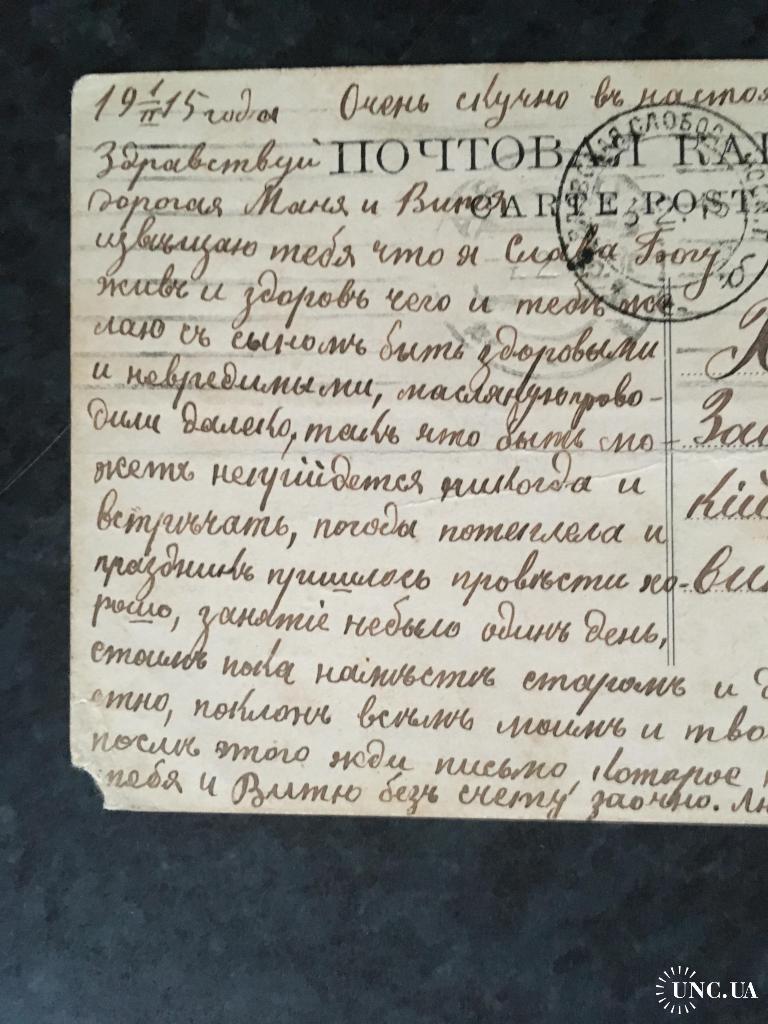 19 1/II 15 года Очень скучно въ настоя
Здравствуй ПОЧТОВАЯ КАР
дорогая Маня и Витя CARTE POST
извѣщаю тебя что я Слава Богу
живъ и здоровъ чего и тебѣ же-
лаю съ сыномъ быть здоровыми
и невредимыми, масляную прово-
дили далеко, такъ что быть мо-
жетъ непрійдется никогда и
встрѣчать, погода потеплела и
праздникъ пришлось провѣсти хо-
рошо, занятіе небыло одинъ день,
стоимъ пока на мѣстѣ старомъ и
стно, поклонъ всѣмъ моимъ и тво
послѣ этого жди письмо, которое
тебя и Витю безъ счету заочно.
За
кій
ви
СЛОБОД
UNC.UA